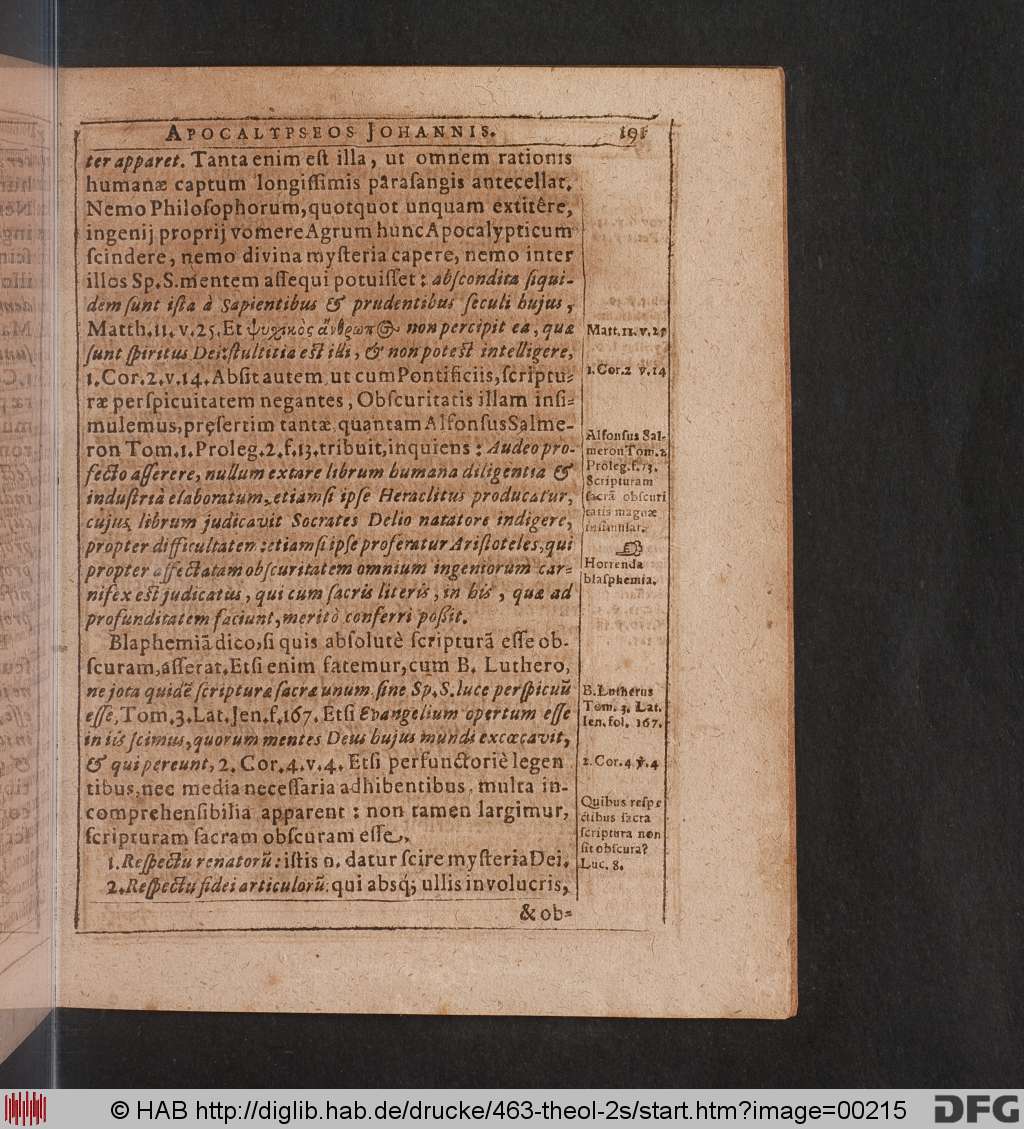 APOCALYPSEOS JOHANNIS. 191
ter apparet. Tanta enim eſt illa, ut omnem rationis
humanæ captum longiſſimis paraſangis antecellat.
Nemo Philoſophorum, quotquot unquam extitêre,
ingenij proprij vomere Agrum hunc Apocalypticum
ſcindere, nemo divina myſteria capere, nemo inter
illos Sp. S. mentem aſſequi potuiſſet: abſcondita ſiqui-
dem ſunt iſta à Sapientibus & prudentibus ſeculi hujus,
Matth. 11. v. 25. Et ψυχικὸς ἄνθρωπος non percipit ea, quæ
ſunt ſpiritus Dei: ſtultitia eſt illi, & non poteſt intelligere,
1. Cor. 2. v. 14. Abſit autem ut cum Pontificiis, ſcriptu-
ræ perſpicuitatem negantes, Obſcuritatis illam inſi-
mulemus, pręſertim tantæ quantam Alfonſus Salme-
ron Tom. 1. Proleg. 2. f. 13. tribuit, inquiens: Audeo pro-
fecto aſſerere, nullum extare librum humana diligentia &
induſtriâ elaboratum, etiamſi ipſe Heraclitus producatur,
cujus librum judicavit Socrates Delio natatore indigere,
propter difficultatem: etiamſi ipſe proferatur Ariſtoteles, qui
propter affectatam obſcuritatem omnium ingeniorum car-
nifex eſt judicatus, qui cum ſacris literis, in his, quæ ad
profunditatem faciunt, meritò conferri poßit.
Blaphemiā dico, ſi quis abſolutè ſcripturā eſſe ob-
ſcuram, aſſerat. Etſi enim fatemur, cum B. Luthero,
ne jota quidē ſcripturæ ſacræ unum ſine Sp. S. luce perſpicuū
eſſe, Tom. 3. Lat. Jen. f. 167. Etſi Evangelium opertum eſſe
in iis ſcimus, quorum mentes Deus hujus mundi excæcavit,
& qui pereunt, 2. Cor. 4. v. 4. Etſi perfunctoriè legen
tibus, nec media neceſſaria adhibentibus, multa in-
comprehenſibilia apparent: non tamen largimur,
ſcripturam ſacram obſcuram eſſe,
1. Reſpectu renatorū: iſtis n. datur ſcire myſteria Dei.
2. Reſpectu fidei articulorū: qui absq; ullis involucris,
& ob-
Matt. 11. v. 25
1. Cor. 2 v. 14
Alfonſus Sal-
meron Tom. 1
Proleg. f. 13.
Scripturam
ſacrā obſcuri
tatis magnæ
inſimulat.
Horrenda
blaſphemia.
B. Lutherus
Tom. 3. Lat.
Ien. fol. 167.
2. Cor. 4 v. 4
Quibus reſpe
ctibus ſacra
ſcriptura non
ſit obſcura?
Luc. 8.
© HAB http://diglib.hab.de/drucke/463-theol-2s/start.htm?image=00215
DFG